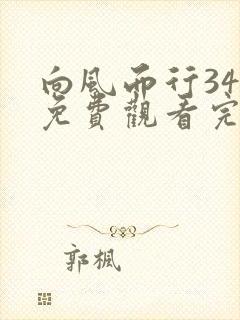 向风而行34
免費觀看完
郭楓